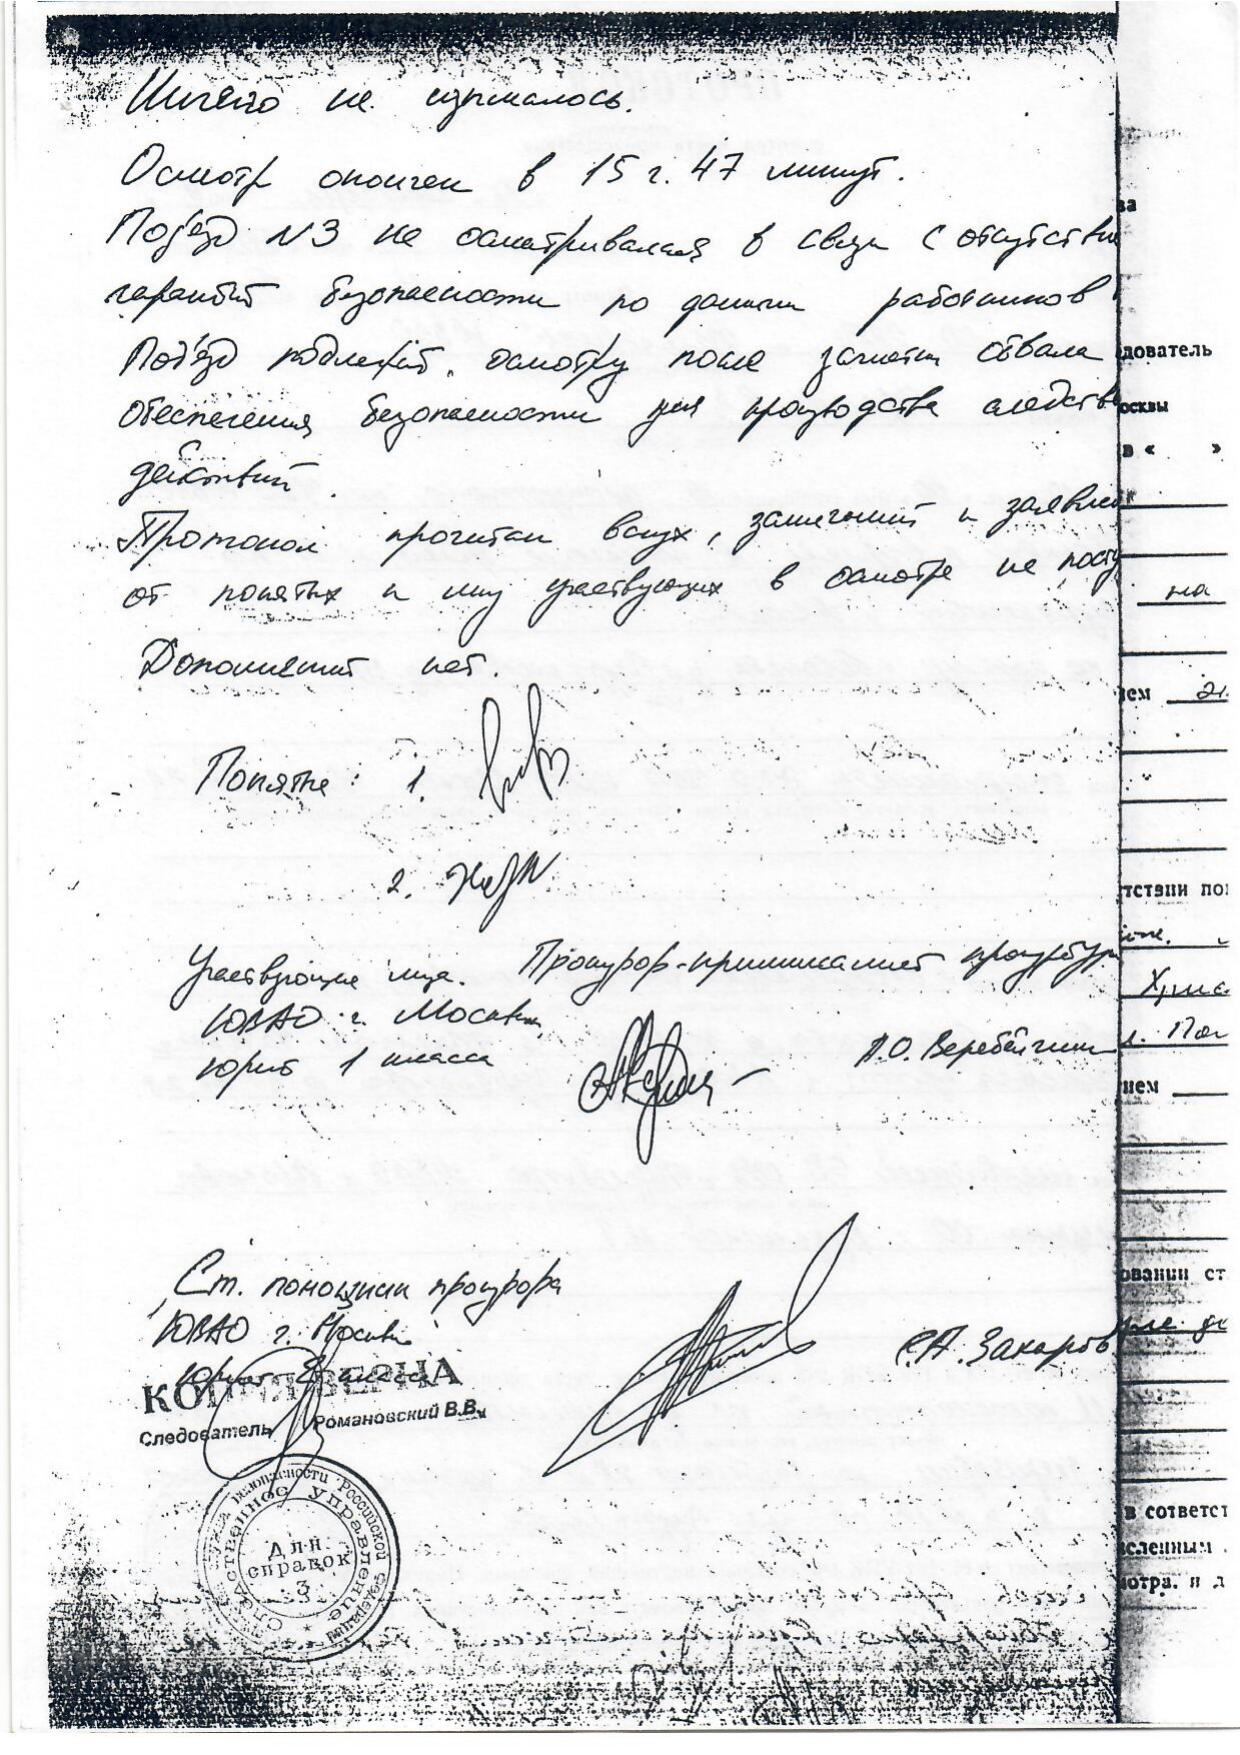 Ничего не изымалось.
Осмотр окончен в 15 г. 47 минут.
Под'езд N3 не осматривался в связи с отсутстви
гарантий безопасности по данным работников
Под'езд подлежит осмотру после зачистки обвала
обеспечения безопасности для производства следств
действий.
Протокол прочитан вслух, замечаний и заявлен
от понятых и лиц участвующих в осмотре не посту
Дополнений нет.
Понятые: 1.
2.
Участвующие лица. Прокурор-криминалист прокуратуры
ЮВАО г. Москвы
юрист 1 класса
А.О. Веребейчик
Ст. помощник прокурора
ЮВАО г. Москвы
юрист класса
С.А. Захаров
КОПИЯ ВЕРНА
Следователь Романовский В.В.
безопасности Российской Федерации
Следственное Управление
Для
справок
3
ва
дователь
осквы
в « »
на
ем
тствии по
Хрис
ием
овании ст
в сответст
сленным
отра. и д